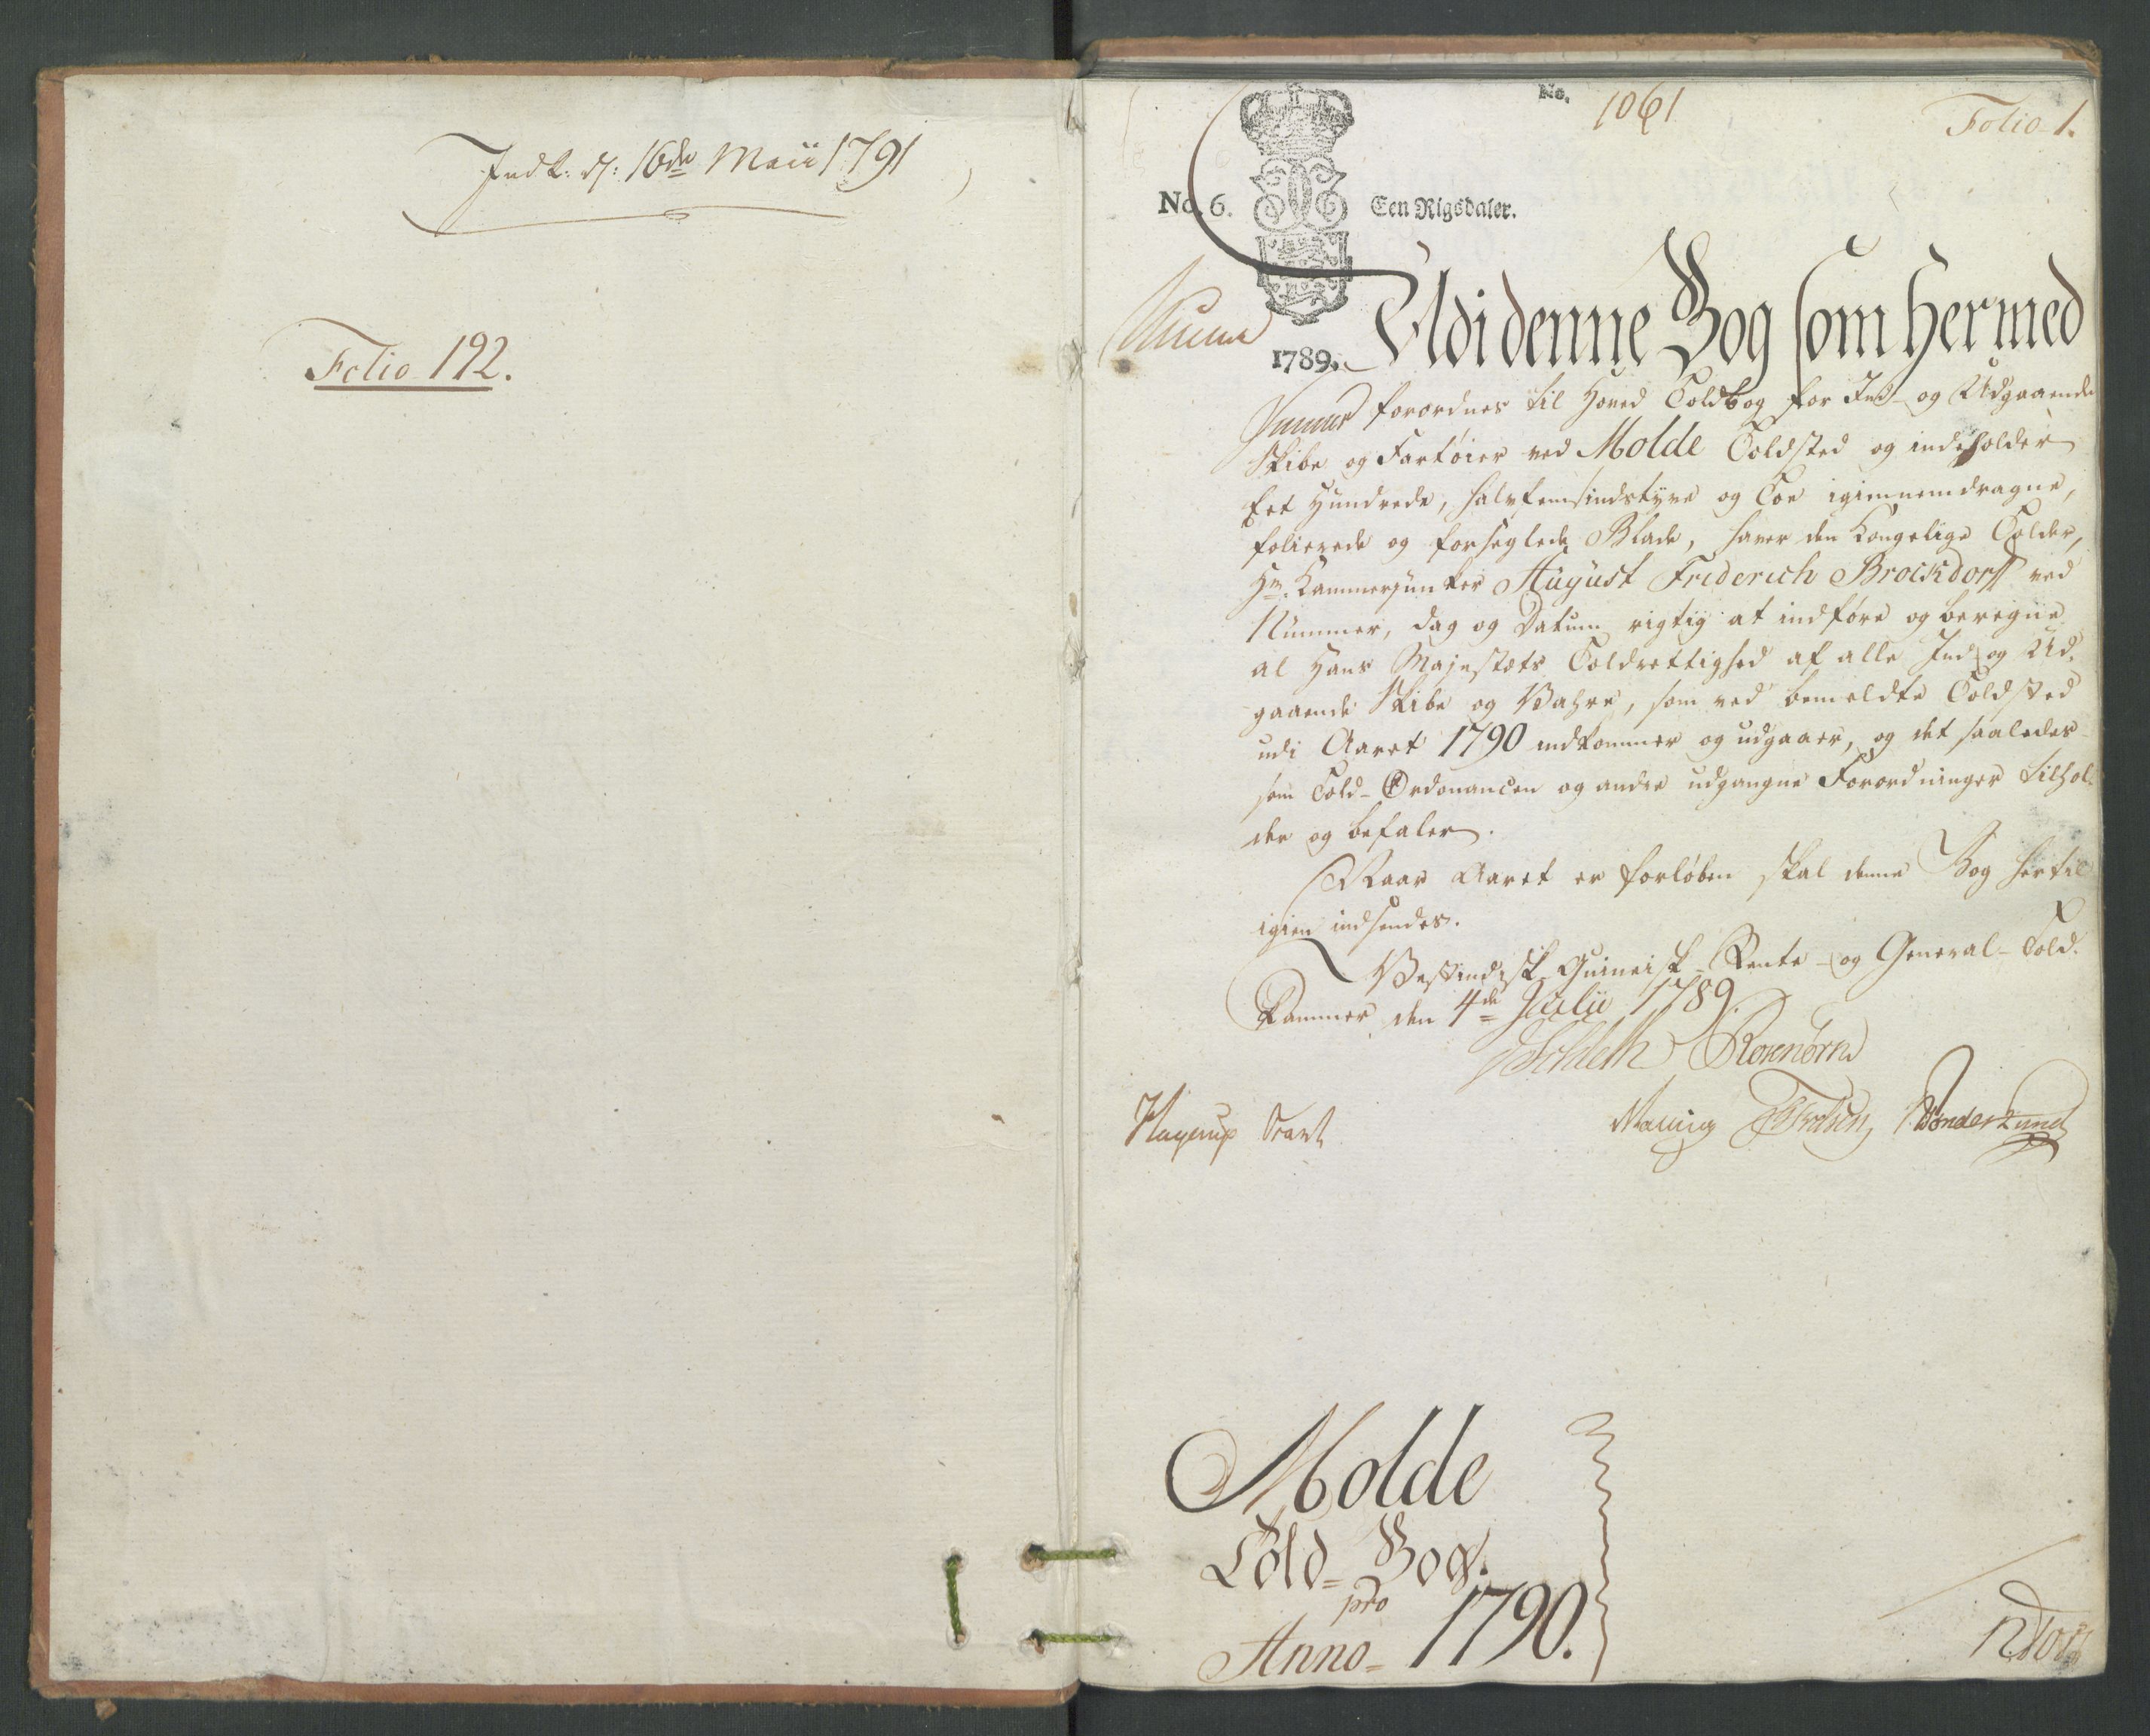 Indk: d: 16de Maii 1791
Folio 192.
No. 1061
Folio 1.
No. 6.
Een Rigsdaler.
1789.
Udi denne Bog som hermed
forordnes til Hoved Toldbog for Ind- og Udgaaende
Skibe og Fartøier ved Molde Toldsted og indeholder
Eet Hundrede, halvfemsindstyve og Toe igiennemdragne,
folierede og forseglede Blade, haver den Kongelige Tolder,
Hr. Kammerjunker August Friderich Brockdorff ved
Nummer, Dag og Datum rigtig at indføre og beregne
al Hans Majestæts Toldrettighed af alle Ind og Ud-
gaaende Skibe og Vahre, som ved bemeldte Toldsted
udi Aaret 1790 indkommer og udgaaer, og det saaledes
som Told-Ordonancen og andre udgangne Forordninger tilhol-
der og befaler.
Naar Aaret er forløben skal denne Bog hertil
igien indsendes.
Vestindisk Guineisk Rente- og General-Told-
Kammer den 4de Julii 1789.
Rosenørn
Hagerup
Molde
Told-Bog.
pro
Anno 1790.